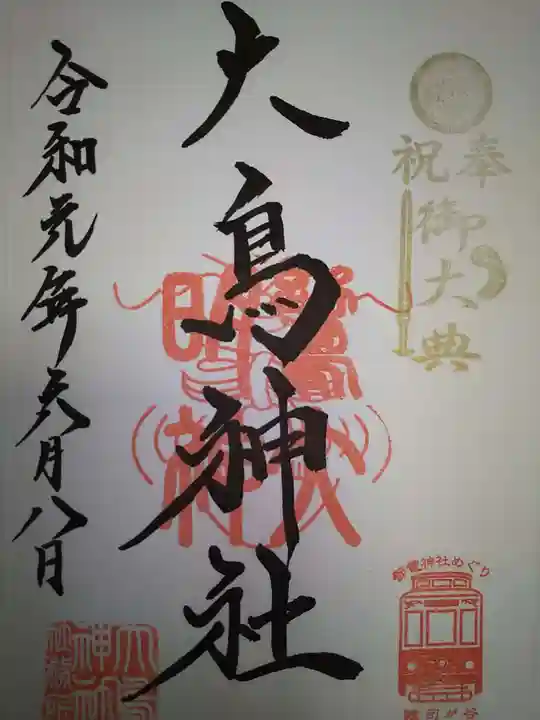 奉祝
御大典
大鳥神社
令和元年六月八日
都電神社めぐり
雑司が谷